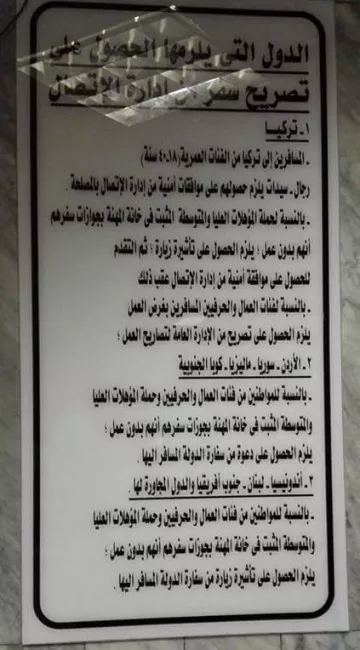 الدول التى يلزمها الحصول على
تصريح سفر من إدارة الإتصال
١ـ تركيـا
ـ المسافرين إلى تركيا من الفئات العمرية (١٨ـ٤٠ سنة)
رجال ـ سيدات يلزم حصولهم على موافقات أمنية من إدارة الإتصال بالمصلحة .
ـ بالنسبة لحملة المؤهلات العليا والمتوسطة المثبت فى خانة المهنة بجوازات سفرهم
أنهم بدون عمل ؛ يلزم الحصول على تأشيرة زيارة ؛ ثم التقدم
للحصول على موافقة أمنية من إدارة الإتصال عقب ذلك
ـ بالنسبة لفئات العمال والحرفيين المسافرين بغرض العمل
يلزم الحصول على تصريح من الإدارة العامة لتصاريح العمل ؛
٢ ـ الأردن ـ سوريا ـ ماليزيا ـ كوريا الجنوبية
ـ بالنسبة للمواطنين من فئات العمال والحرفيين وحملة المؤهلات العليا
والمتوسطة المثبت فى خانة المهنة بجوزات سفرهم أنهم بدون عمل ؛
يلزم الحصول على دعوة من سفارة الدولة المسافر اليها .
٣ ـ أندونيسيا ـ لبنان ـ جنوب أفريقيا والدول المجاورة لها .
ـ بالنسبة للمواطنين من فئات العمال والحرفيين وحملة المؤهلات العليا
والمتوسطة المثبت فى خانة المهنة بجوزات سفرهم أنهم بدون عمل ؛
يلزم الحصول على تأشيرة زيارة من سفارة الدولة المسافر اليها .